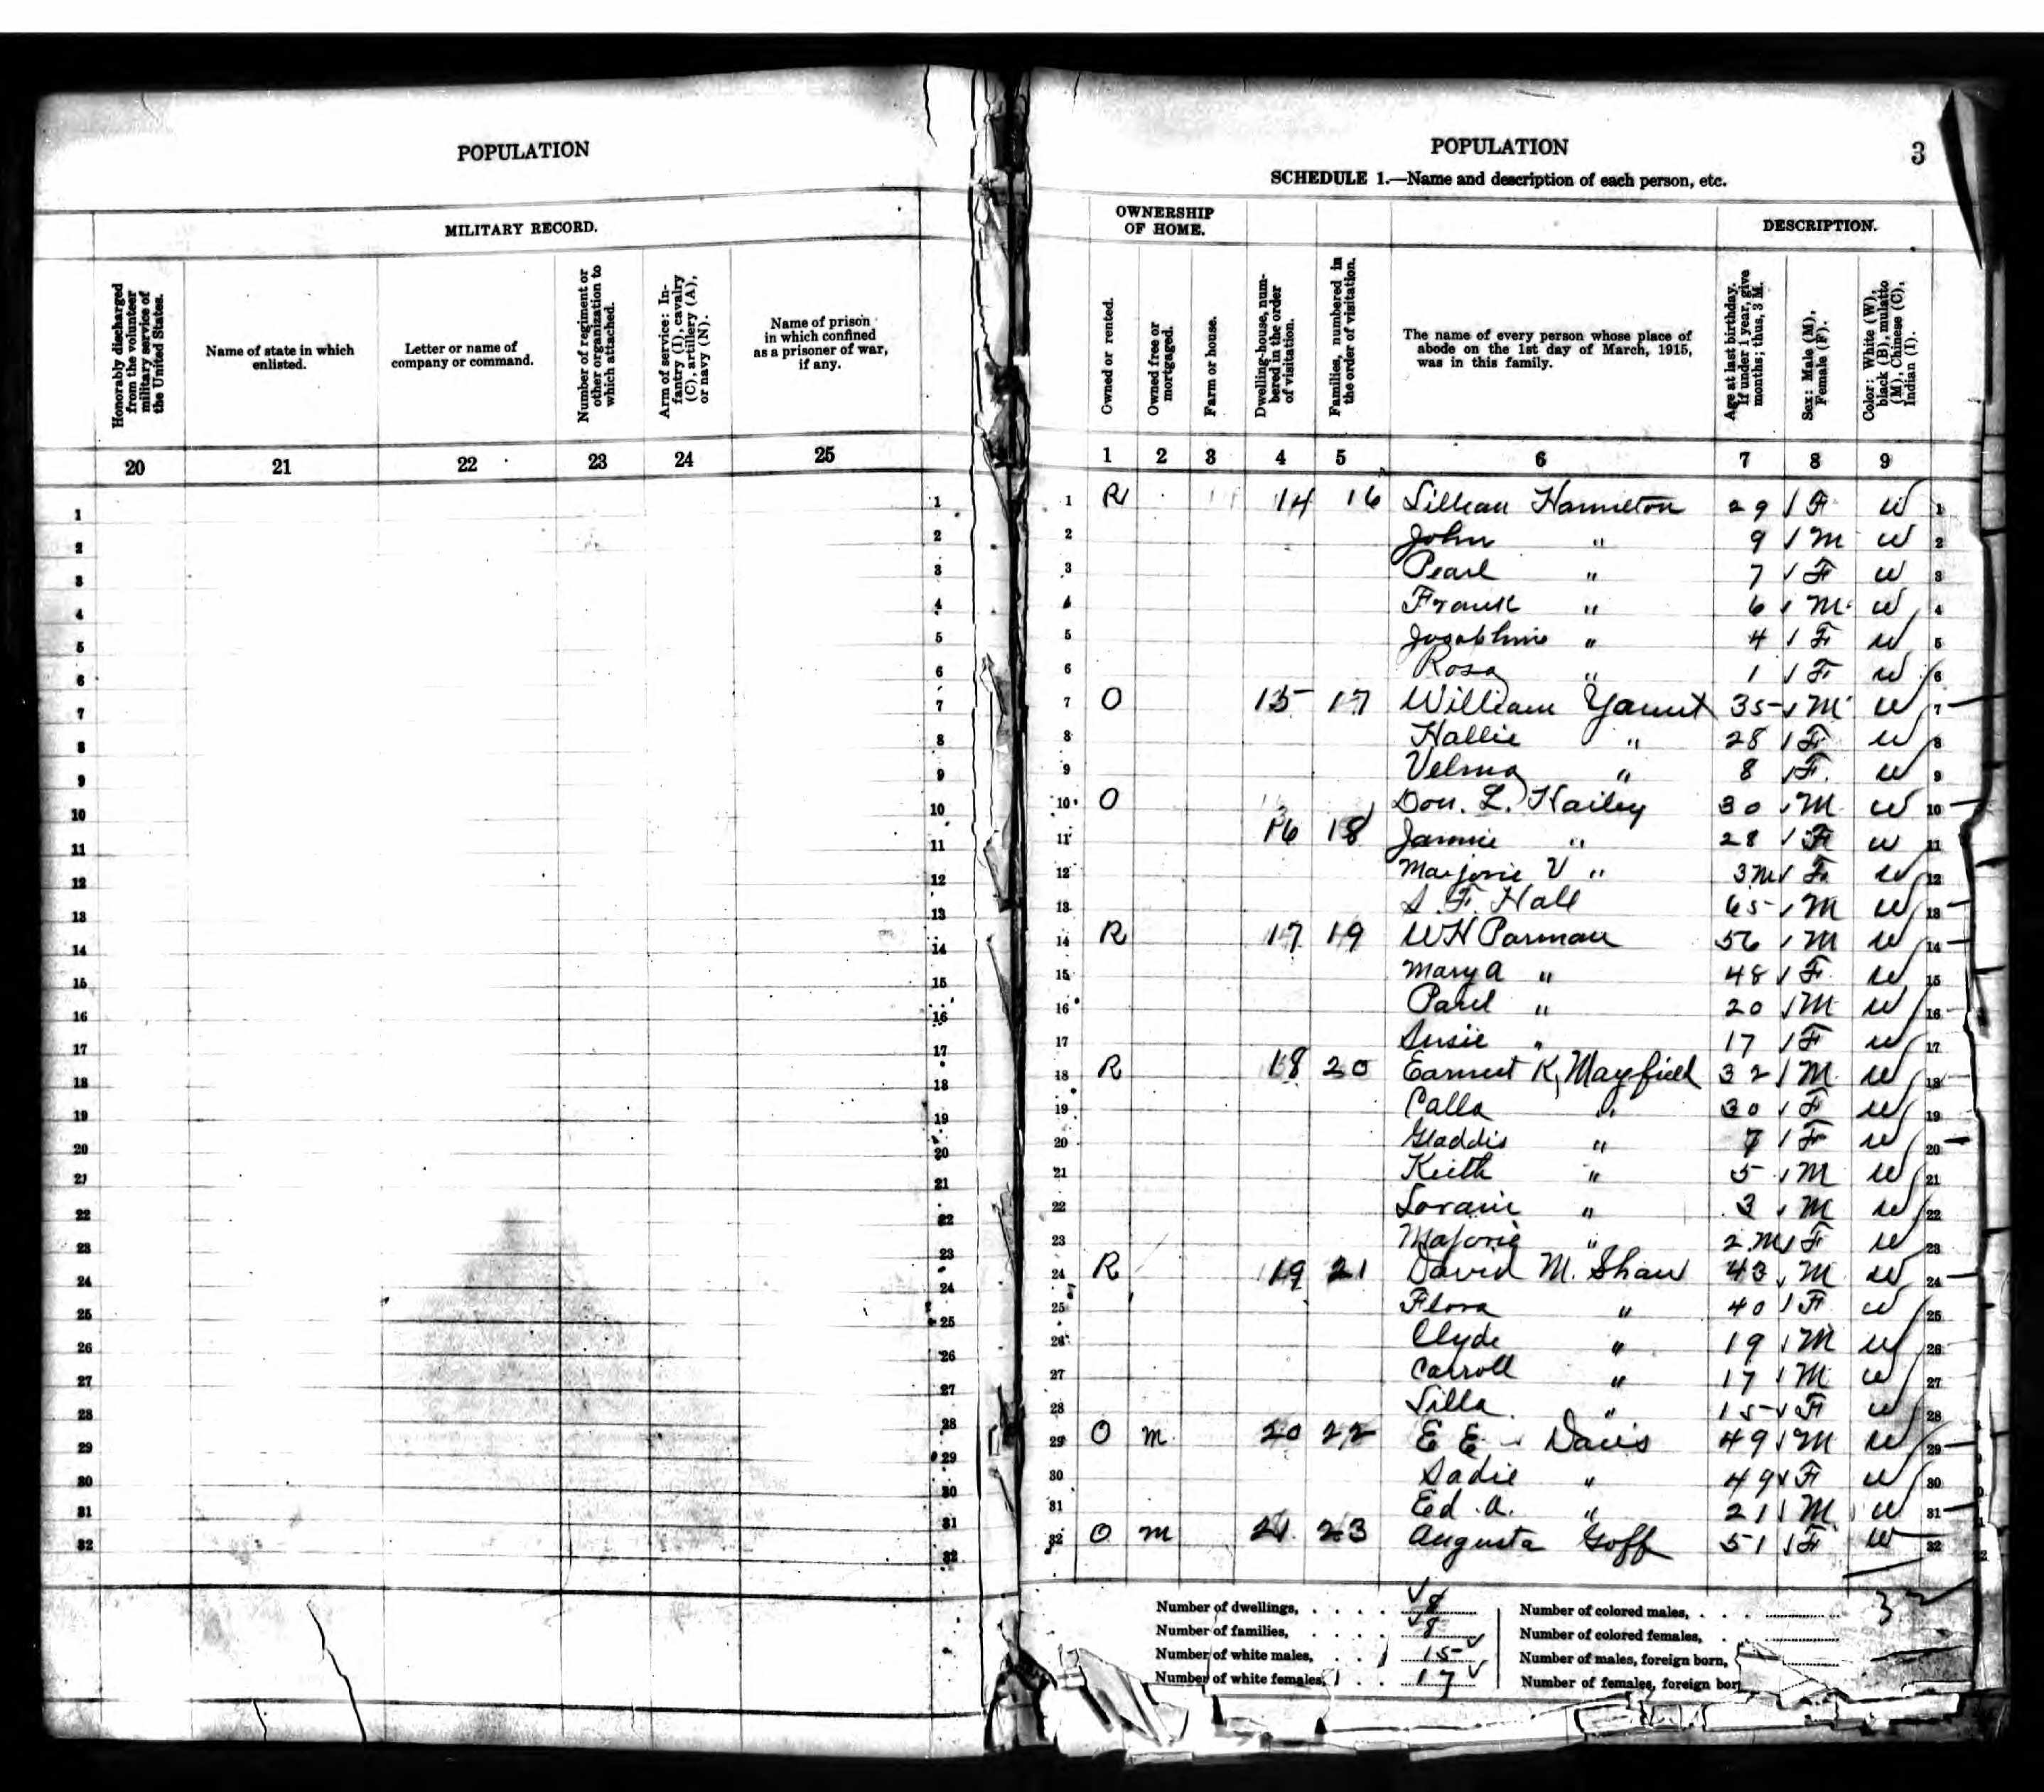 POPULATION
MILITARY RECORD.
Honorably discharged
from the volunteer
military service of
the United States.
Name of state in which
enlisted.
Letter or name of
company or command.
Number of regiment or
other organization to
which attached.
Arm of service: In-
fantry (I), cavalry
(C), artillery (A),
or navy (N).
Name of prison
in which confined
as a prisoner of war,
if any.
20 21 22 23 24 25
1 1
2 2
3 3
4 4
5 5
6 6
7 7
8 8
9 9
10 10
11 11
12 12
13 13
14 14
15 15
16 16
17 17
18 18
19 19
20 20
21 21
22 22
23 23
24 24
25 25
26 26
27 27
28 28
29 29
30 30
31 31
32 32
POPULATION 3
SCHEDULE 1.—Name and description of each person, etc.
OWNERSHIP
OF HOME.
DESCRIPTION.
Owned or rented.
Owned free or
mortgaged.
Farm or house.
Dwelling-house, num-
bered in the order
of visitation.
Families, numbered in
the order of visitation.
The name of every person whose place of
abode on the 1st day of March, 1915,
was in this family.
Age at last birthday.
If under 1 year, give
months; thus, 3 M.
Sex: Male (M),
Female (F).
Color: White (W),
black (B), mulatto
(M), Chinese (C),
Indian (I).
1 2 3 4 5 6 7 8 9
1 R 14 16 Lillean Hamelton 29 F W 1
2 John " 9 M W 2
3 Pearl " 7 F W 3
4 Frank " 6 M W 4
5 Josephine " 4 F W 5
6 Rosa " 1 F W 6
7 O 15 17 William Yount 35 M W 7
8 Hallie " 28 F W 8
9 Velma " 8 F W 9
10 O Don. L. Hailey 30 M W 10
11 16 18 Jannie " 28 F W 11
12 Marjorie V " 3M F W 12
13 S. F. Hall 65 M W 13
14 R 17 19 W H Parman 56 M W 14
15 Mary A " 48 F W 15
16 Paul " 20 M W 16
17 Susie " 17 F W 17
18 R 18 20 Earnest K Mayfield 32 M W 18
19 Calla " 30 F W 19
20 Gladdis " 7 F W 20
21 Keith " 5 M W 21
22 Lorain " 3 M W 22
23 Majorie " 2M F W 23
24 R 19 21 David M. Shaw 43 M W 24
25 Flora " 40 F W 25
26 Clyde " 19 M W 26
27 Carroll " 17 M W 27
28 Lilla " 15 F W 28
29 O M 20 22 E E Davis 49 M W 29
30 Sadie " 49 F W 30
31 Ed. A. " 21 M W 31
32 O M 21 23 Augusta Goff 51 F W 32
Number of dwellings, . . . . 8
Number of families, . . . . 8
Number of white males, . . 15
Number of white females, . . 17
Number of colored males, . . .
Number of colored females, .
Number of males, foreign born,
Number of females, foreign bor
32